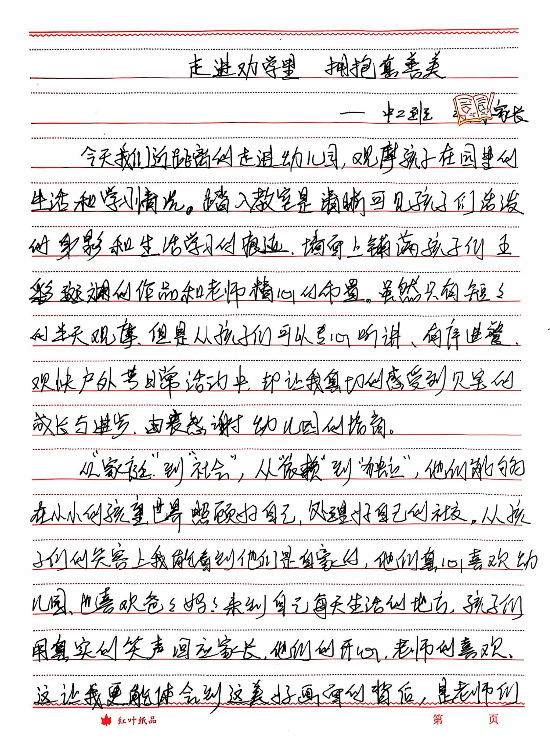 走进幼学里 拥抱真善美
——中二班 家长
今天我们近距离的走进幼儿园,观摩孩子在园里的
生活和学习情况。踏入教室是清晰可见孩子们活泼
的身影和生活学习的痕迹,墙面上铺满孩子们五
彩斑斓的作品和老师精心的布置。虽然只有短々
的半天观摩,但是从孩子们可以专心听讲、有序进餐、
欢快户外等日常活动中,却让我真切的感受到贝宝的
成长与进步,由衷感谢幼儿园的培育。
从“家庭”到“社会”,从“依赖”到“独立”,他们能够
在小小的孩童世界照顾好自己,处理好自己的社交。从孩
子们的笑容上我能看到他们是自豪的,他们真心喜欢幼
儿园、也喜欢爸々妈々来到自己每天生活的地方,孩子们
用真实的笑声回应家长,他们的开心,老师的喜欢、
这让我更能体会到这美好画面的背后,是老师们
红叶纸品 第 页